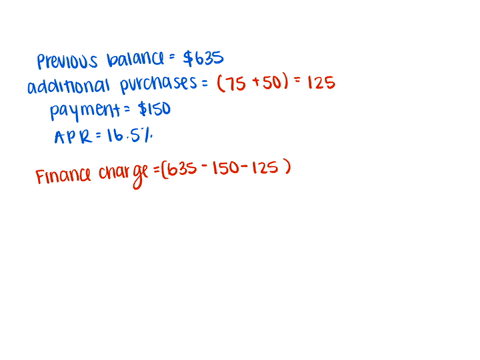 Previous balance = $635
additional purchases = (75 + 50) = 125
payment = $150
APR = 16.5%
Finance charge = (635 - 150 - 125)